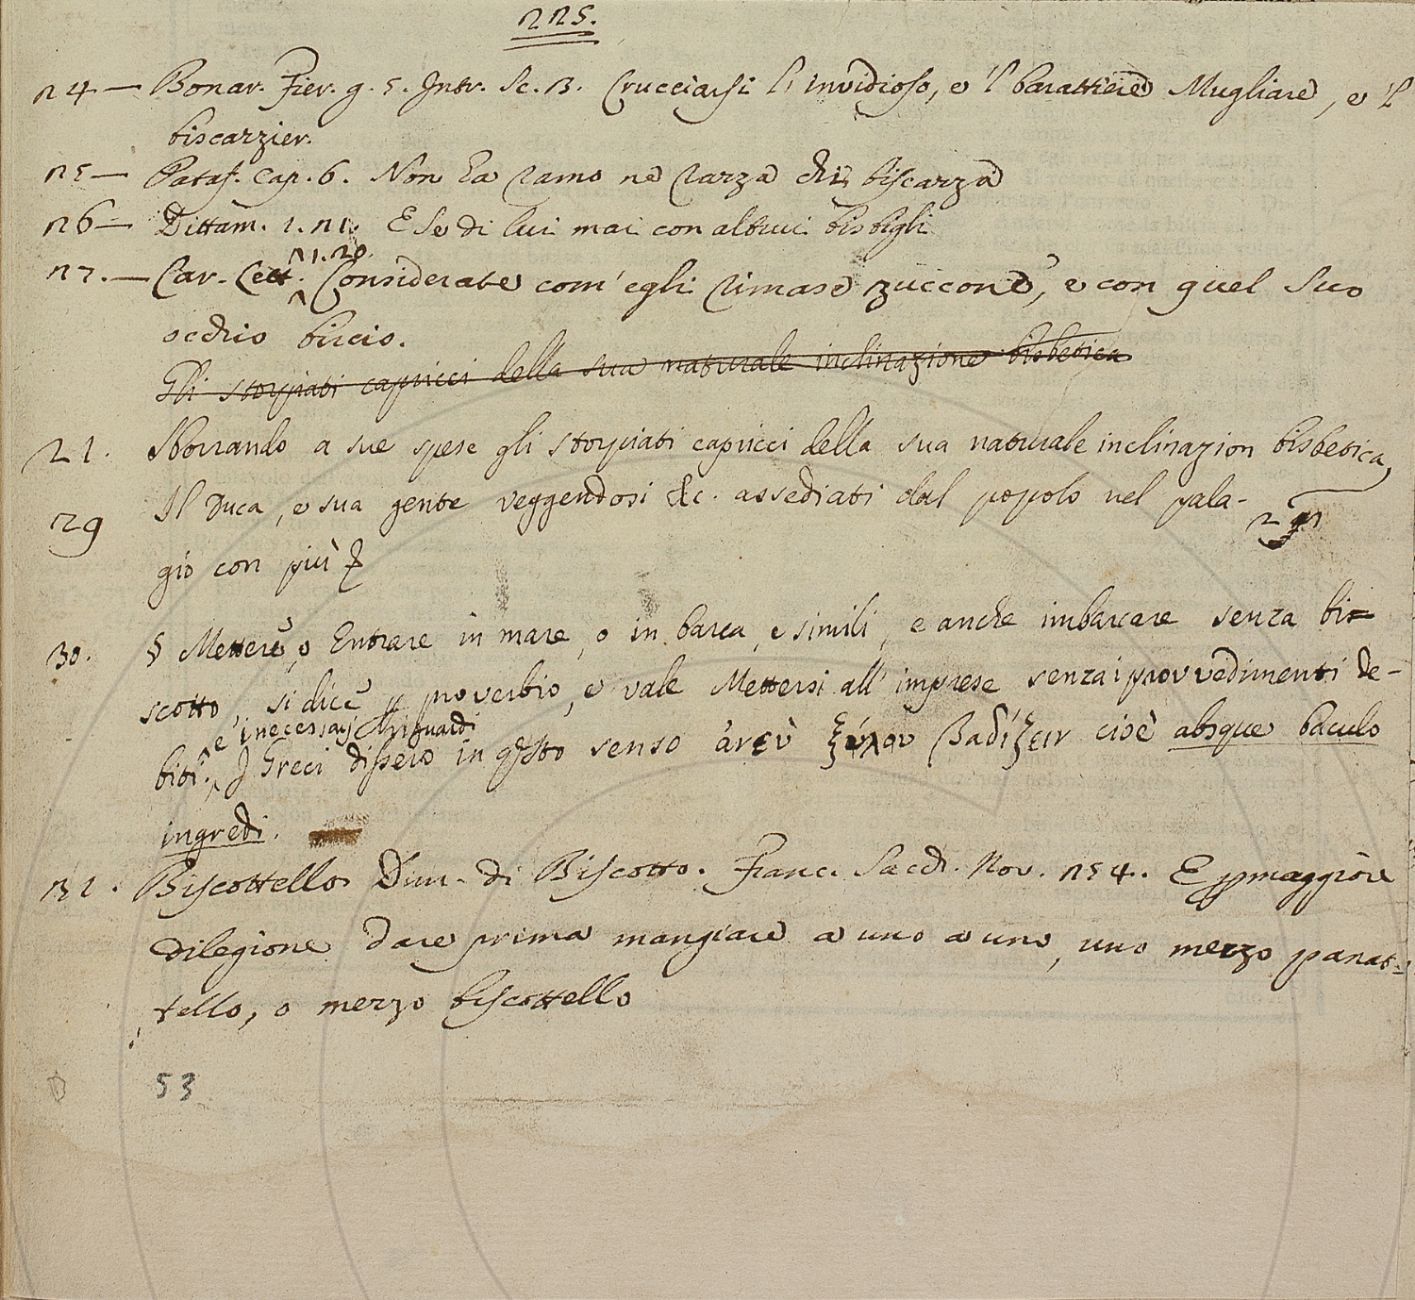 225.
24 — Bonar. Fier. g. 5. Intr. Sc. 3. Crucciarsi l'invidioso, e 'l barattiere Mugliare, e 'l
biscazzier.
25 — Pataf. Cap. 6. Non ha ramo ne razza chi biscazza
26 — Dittam. 1. 21. E se di lui mai con altrui bisbigli
27. — Car. Lett. 21. 20. Considerate com' egli rimase zuccone, e con quel suo
occhio bircio.
Gli storpiati capricci della sua naturale inclinazione bisbetica
21. Sborrando a sue spese gli storpiati capricci della sua naturale inclinazion bisbetica
29 Il Duca, e sua gente veggendosi &c. assediati dal popolo nel pala-
gio con più
30. § Mettere, o Entrare in mare, o in barca, e simili, e anche imbarcare senza bi-
scotto, si dice p proverbio, e vale Mettersi all' imprese senza i provvedimenti de-
biti. e i necessarj riguardi I Greci dissero in qsto senso ἀνεὺ ξύλου βαδίζειν cioè absque baculo
ingredi.
31. Biscottello. Dim. di Biscotto. Franc. Sacch. Nov. 254. E p maggiore
dilegione dare prima mangiare a uno a uno, uno mezzo panat-
tello, o mezzo biscottello
53